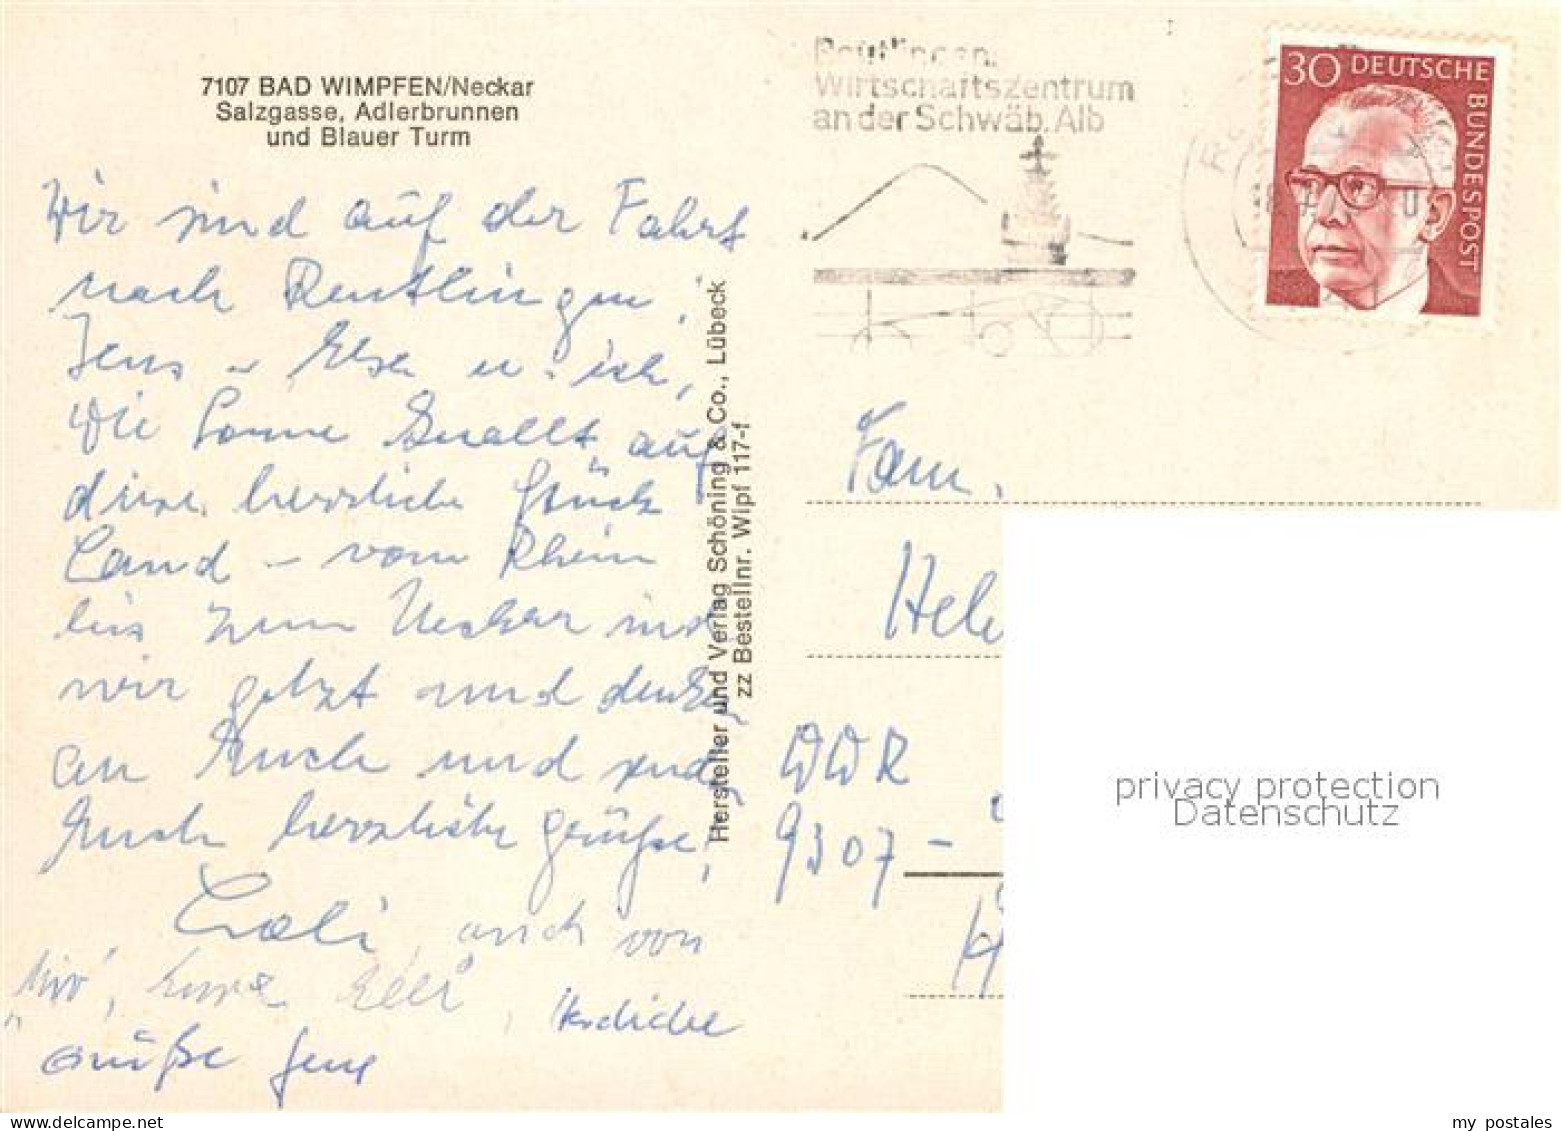 7107 BAD WIMPFEN/Neckar
Salzgasse, Adlerbrunnen
und Blauer Turm
Wir sind auf der Fahrt
nach Reutlingen,
Jens - Else u. ich,
Die Sonne knallt auf
diese herrliche Stück
Land - vom Rhein
bis zum Neckar sind
wir jetzt und denken
an Euch und senden
Euch herzliche Grüße,
auch von
herzliche
Grüße Jens
Hersteller und Verlag Schöning & Co., Lübeck
zz Bestellnr. Wipf 117-f
Reutlingen.
Wirtschaftszentrum
an der Schwäb. Alb
30 DEUTSCHE BUNDESPOST
Fam.
Hel
DDR
9307 -
privacy protection
Datenschutz
delcampe.net
my postales